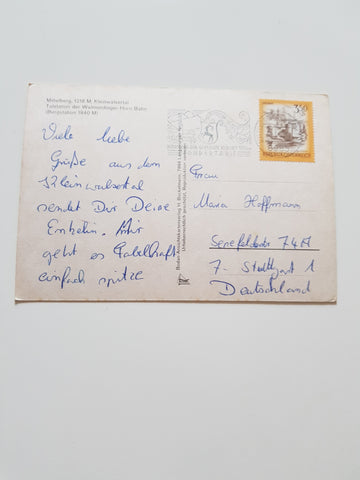 Mittelberg, 1218 M, Kleinwalsertal
Talstation der Walmendinger-Horn Bahn
(Bergstation 1940 M)
Viele liebe
Grüße aus dem
Kleinwalsertal
sendet Dir Deine
Enkelin. Mir
geht es fabelhaft
einfach spitze
3.50
REPUBLIK ÖSTERREICH
Frau
Maria Hoffmann
Senefelderstr 74A
7 Stuttgart 1
Deutschland